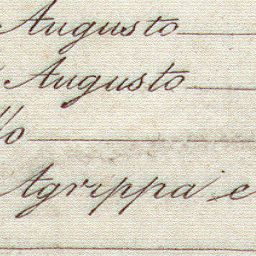 Augusto
Augusto
Agrippa